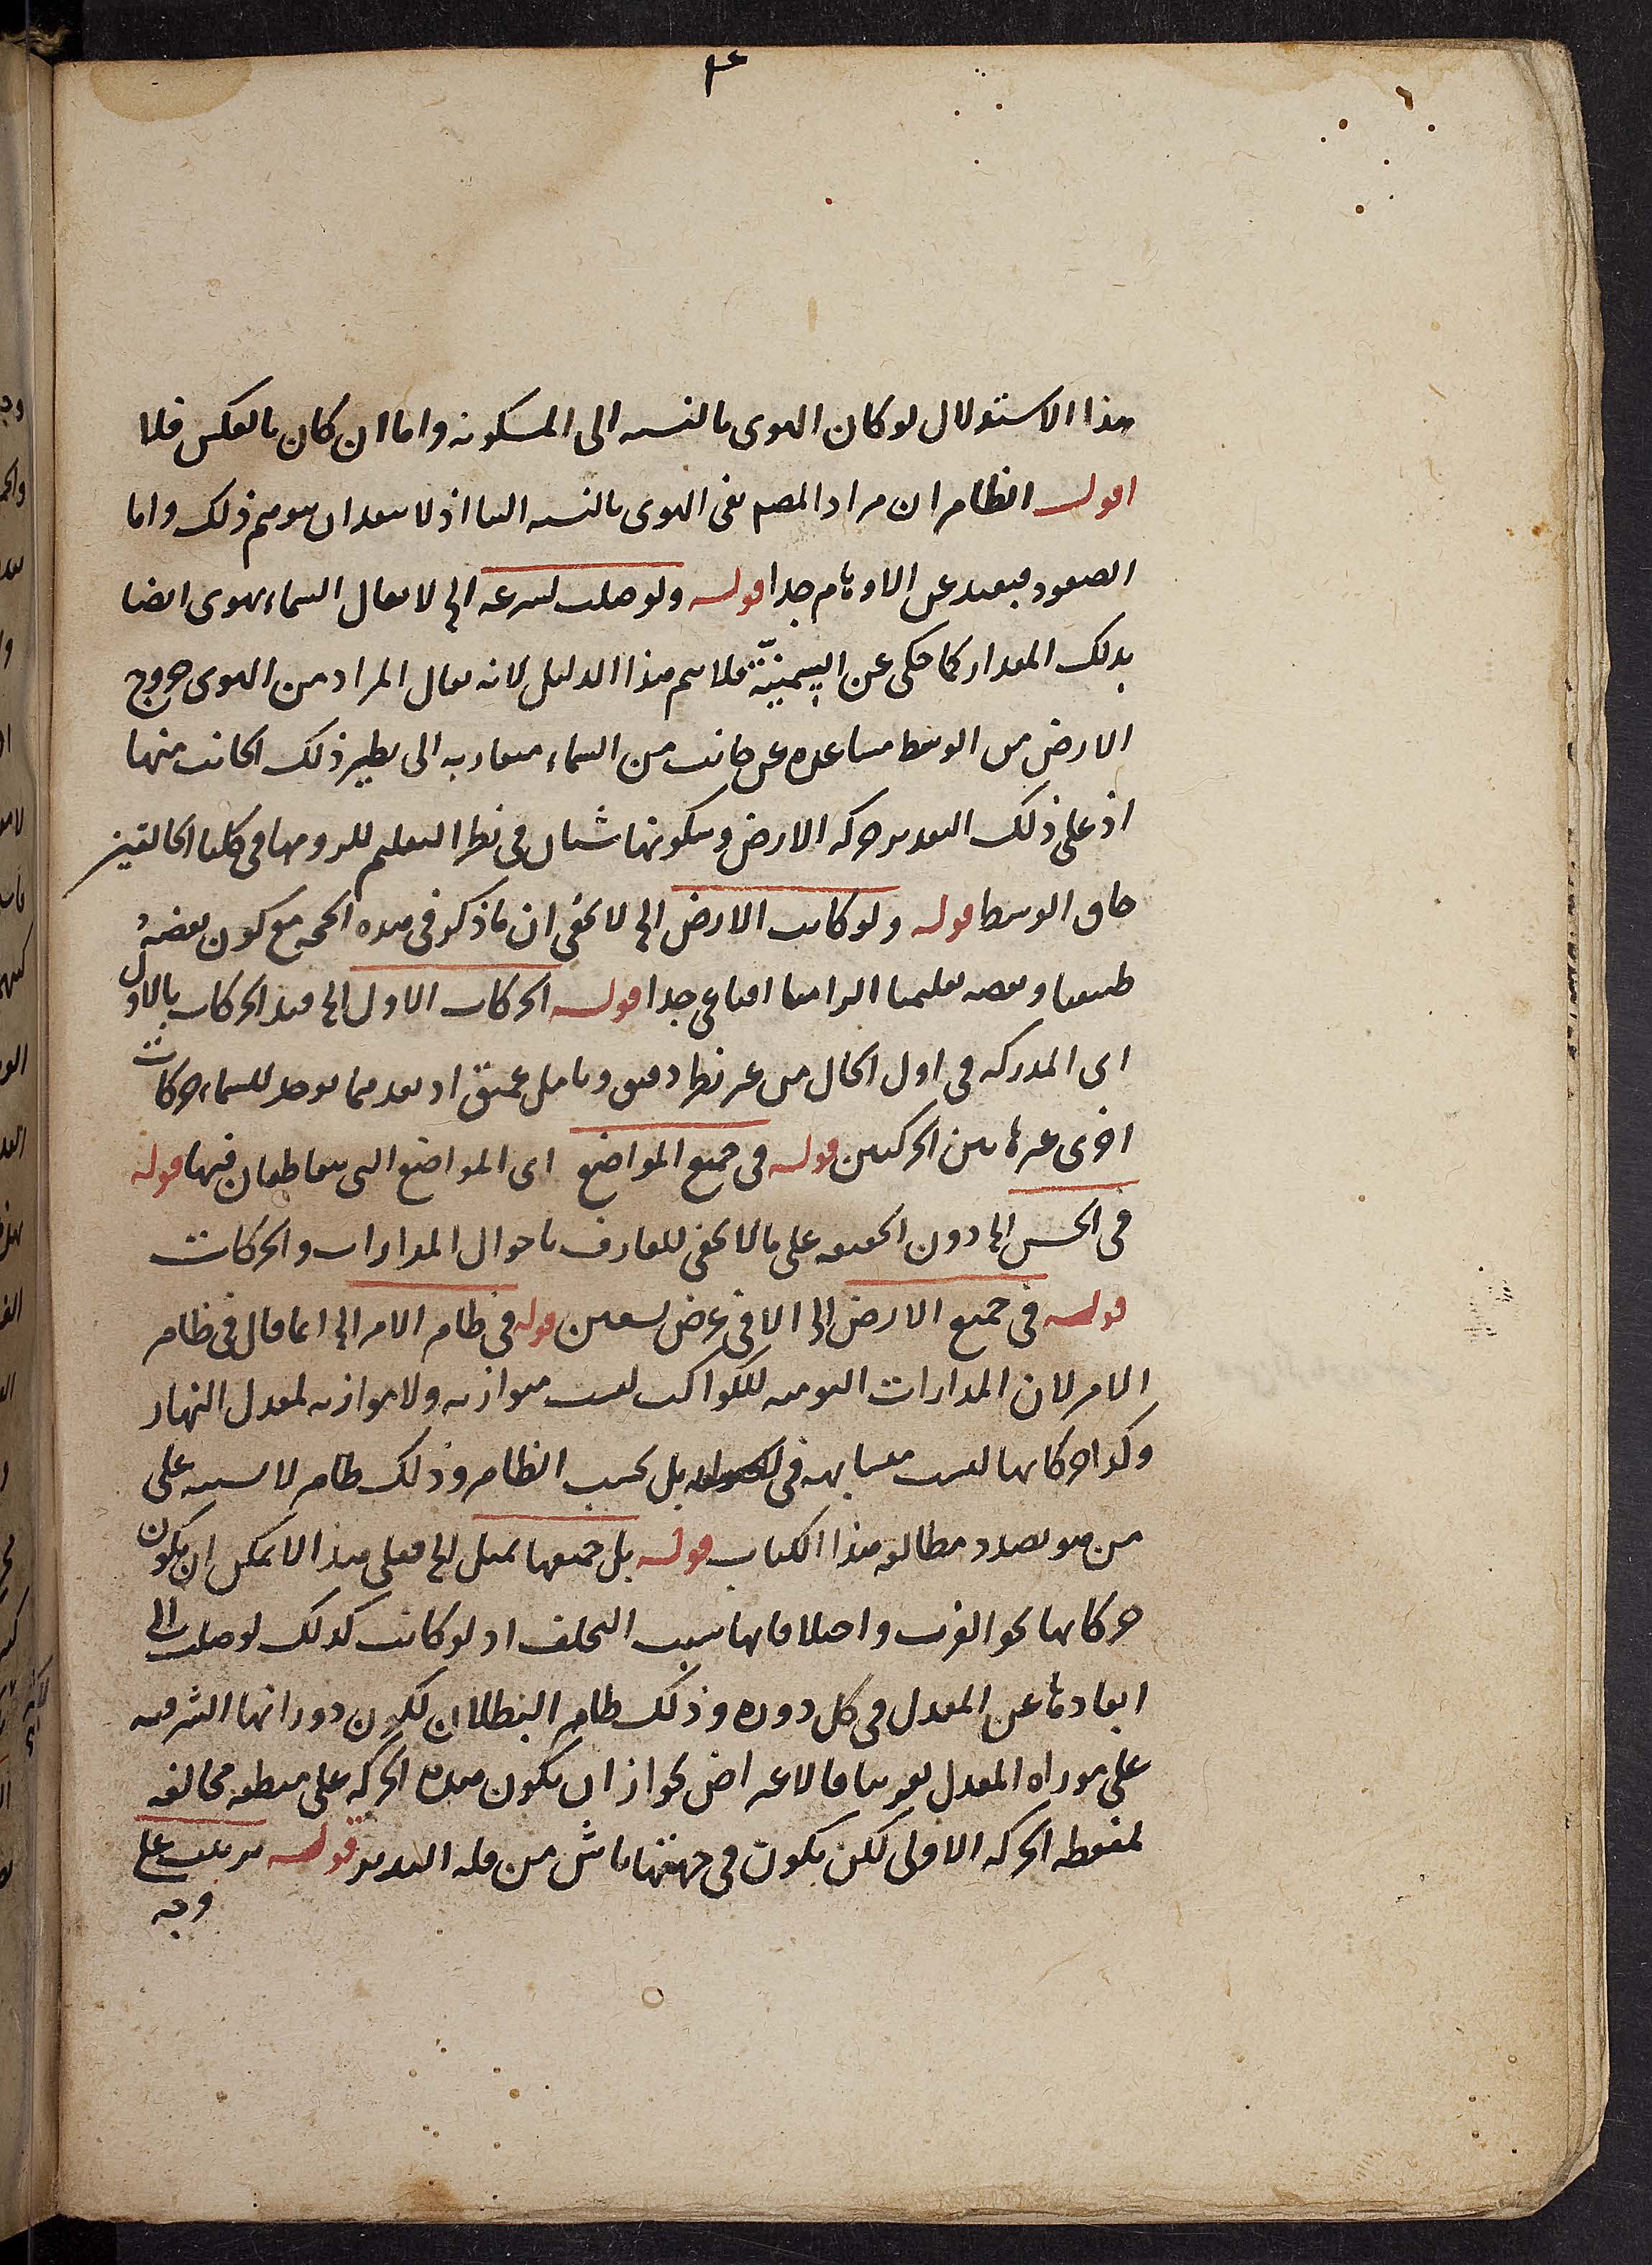 هذا الاستدلال لو كان الهوى بالنسبه الى المسكونه واما ان كان بالعكس فلا
اقول الظاهر ان مراد المصم نفى الهوى بالنسبه الينا اذ لا يبعد ان يتوهم ذلك واما
الصعود فبعيد عن الاوهام جدا قوله ولوصلت لسرعه الخ لا يقال السماء يهوى ايضا
بذلك المقدار كما حكى عن السمنيّة فلا يتم هذا الدليل لانه يقال المراد من الهوى خروج
الارض من الوسط متباعده عن جانب من السماء متقاربه الى نظير ذلك الجانب منها
اذ على ذلك التقدير حركه الارض وسكونها شيان فى نظر التعليم للزومها فى كلتا الحالتين
حاق الوسط قوله ولو كانت الارض الخ لا يخفى ان ما ذكر فى هذه الحجه مع كون بعضهُ
طبيعيا وبعضه تعليميا الزاميا اقناعى جدا قوله الحركات الاول الخ قيد الحركات بالاول
اى المدركه فى اول الحال من غير نظر دقيق وتامل عميق اذ بعد مما يوجد للسماء حركات
اخرى غير هاتين الحركتين قوله فى جميع المواضع اى المواضع التى يتقاطعان فيها قوله
فى الحس الخ دون الحقيقه على ما لا يخفى للعارف باحوال المدارات والحركات
قوله فى جميع الارض الخ الا فى عرض تسعين قوله فى ظاهر الامر الخ انما قال فى ظاهر
الامر لان المدارات اليوميه للكواكب ليست متوازيه ولا موازيه لمعدل النهار
وكذا حركاتها ليست متشابهه فى بل بحسب الظاهر وذلك ظاهر لا يشتبه على
من هو بصدد مطالعه هذا الكتاب قوله بل جميعها يميل الخ فعلى هذا لا يمكن ان يكون
حركاتها نحو الغرب واختلافاتها بسبب التخلف اذ لو كانت كذلك لوصلت الى
ابعادها عن المعدل فى كل دوره وذلك ظاهر البطلان لكون دوراتها الشرقيه
على موازاه المعدل تقريبا فالاعتراض بجواز ان يكون هذه الحركه على منطقه مخالفه
لمنطقه الحركه الاولى لكن يكون فى جهتها ناش من قله التدبر قوله مرتبت على
وجه